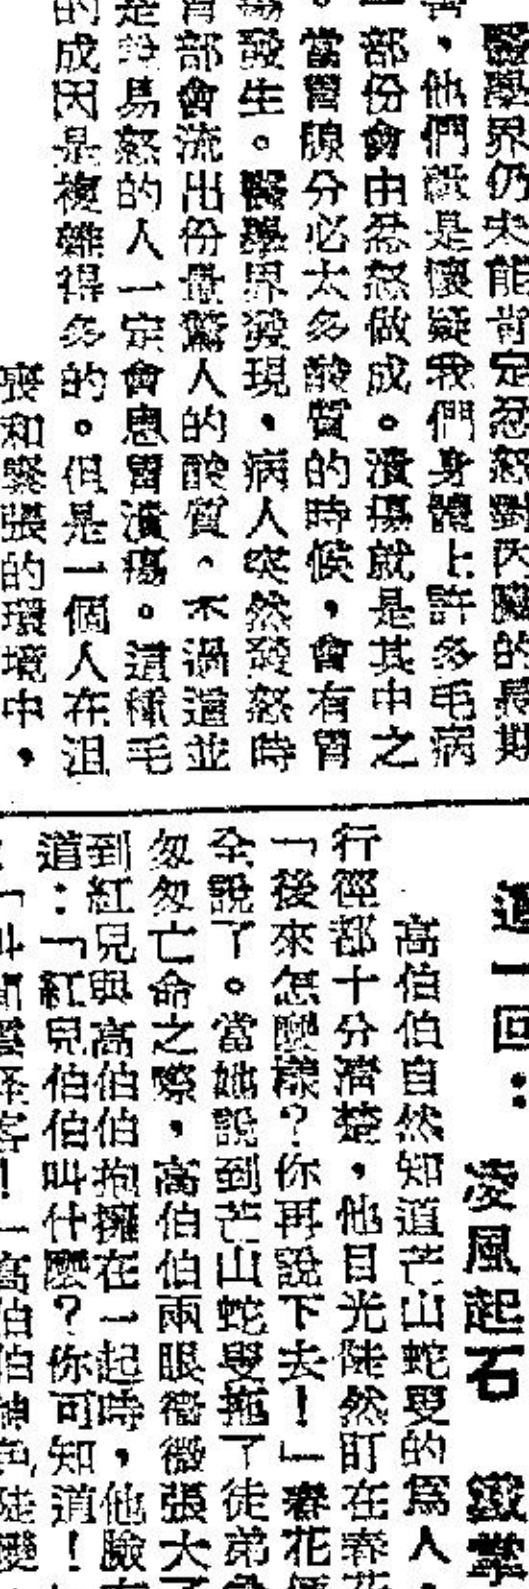 醫學界仍未能肯定忍怒對內臟的長期
害，他們祇是懷疑我們身體上許多毛病
一部份會由忍怒做成。潰瘍就是其中之
。當胃腺分必太多酸質的時候，會有胃
瘍發生。醫學界發現，病人突然發怒時
胃部會流出份量驚人的酸質。不過這並
是說易怒的人一定會患胃潰瘍。這種毛
的成因是複雜得多的。但是一個人在沮
喪和緊張的環境中，
這一回：凌風起石
高伯伯自然知道芒山蛇叟的爲人，
行徑都十分清楚，他目光陡然盯在春花
「後來怎麼樣？你再說下去！」春花便
全說了。當她說到芒山蛇叟拖了徒弟
匆匆亡命之際，高伯伯兩眼微微張大了
到紅兒與高伯伯抱擁在一起時，他臉
道：「紅兒伯伯叫什麼？你可知道！
「叫 怪客！」高伯伯神色陡變